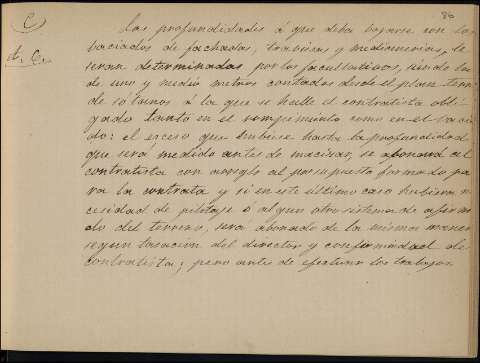 80
C
Las profundidades á que deba bajarse con los
vaciados de fachadas, traviesas y medianerias, le
seran determinadas por los facultativos, siendo la
de uno y medio metros contados desde el plano
de sotanos á la que se halle el contratista obli-
gado tanto en el rompimiento como en el vacia-
do: el exceso que hubiese hasta la profundidad
que será medido antes de macizar, se abonará al
contratista con arreglo al presupuesto formado pa-
ra la contrata y si en este ultimo caso hubiera ne-
cesidad de pilotaje ó algun otro sistema de afirma-
do del terreno, sera abonado de la misma manera
segun tasacion del director y conformidad del
contratista; pero antes de efectuar los trabajos